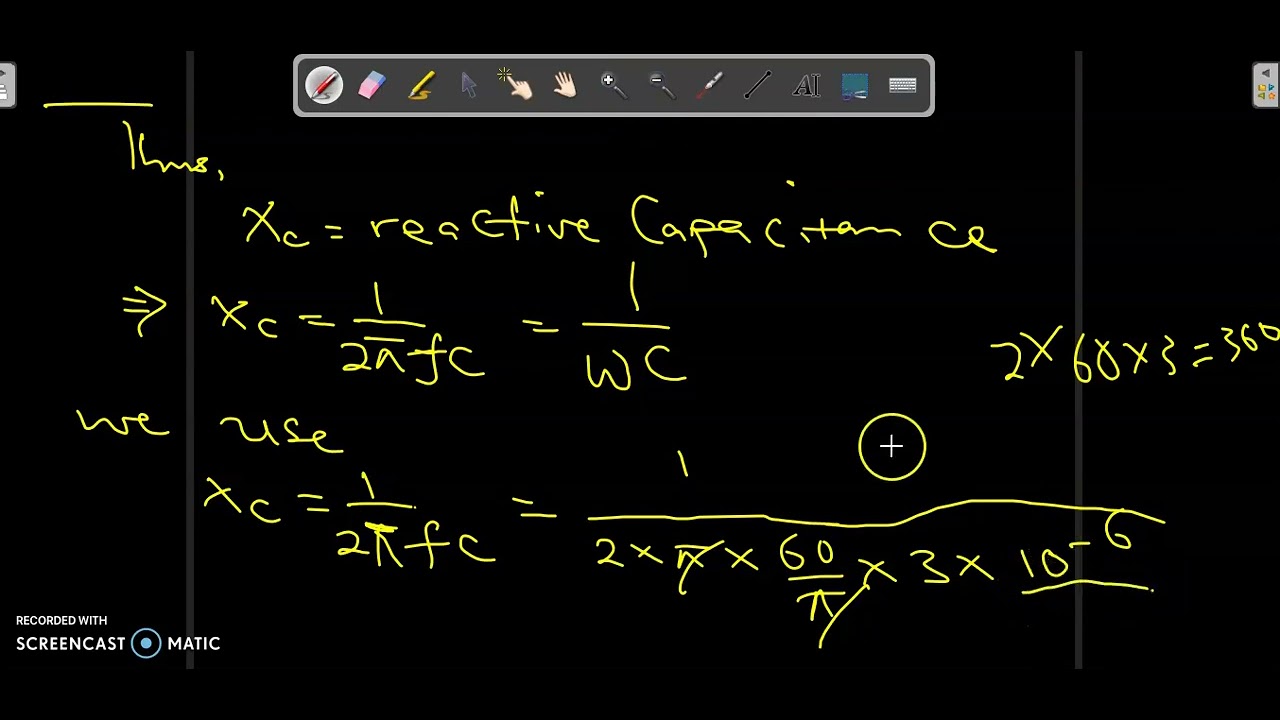 AI
Thus,
Xc = reactive Capacitance
⇒ Xc = 1/2πfC = 1/WC
2×60×3=360
we use
Xc = 1/2πfC = 1/2×π×60/π×3×10⁻⁶
RECORDED WITH
SCREENCAST MATIC